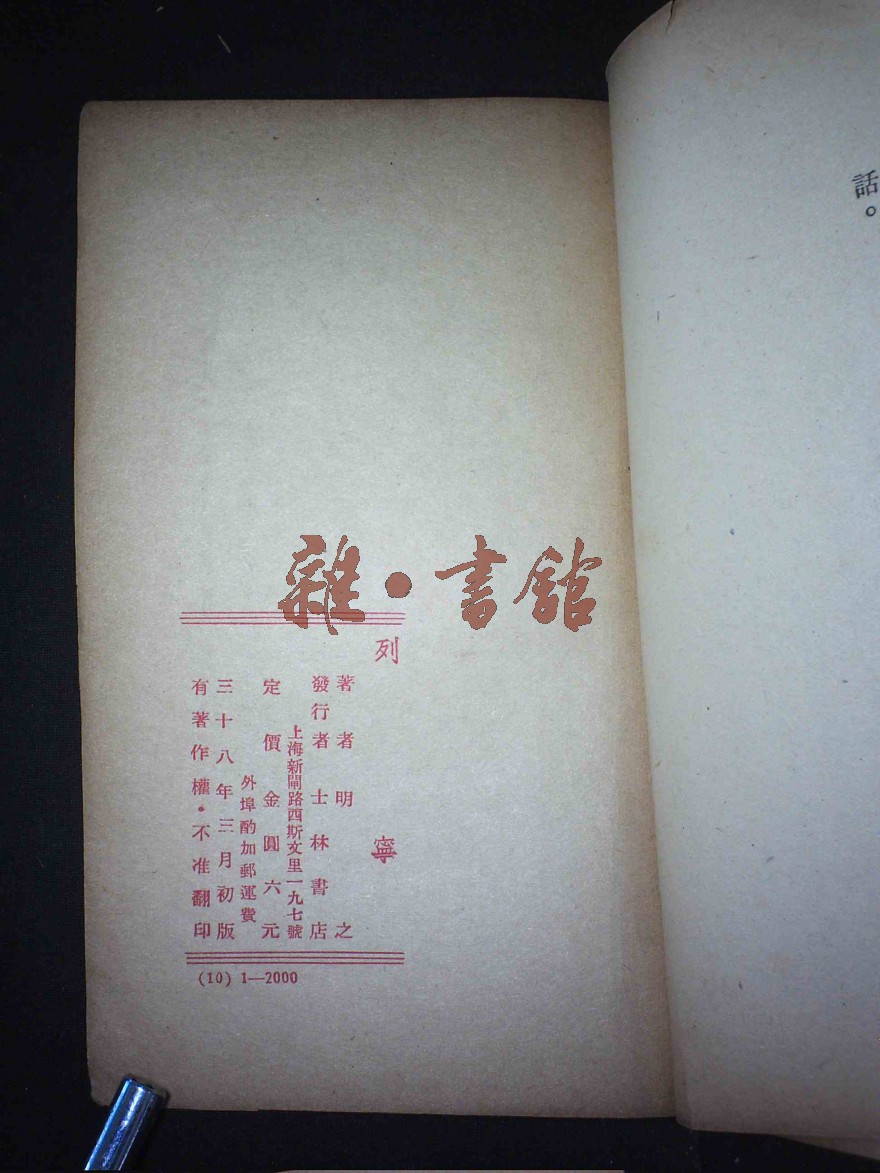 話。
雜·書館
列寧
著者明之
發行者士林書店
上海新閘路西斯文里一九七號
定價金圓六元
外埠酌加郵運費
三十八年三月初版
有著作權·不准翻印
(10) 1—2000